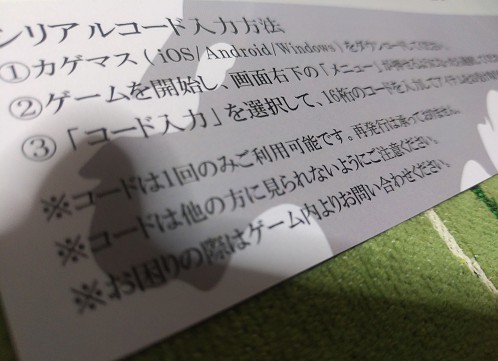 ンリアルコード入力方法
①カゲマス(iOS/Android/Windows)をダウンロードしてください。
②ゲームを開始し、画面右下の「メニュー」
③「コード入力」を選択して、16桁のコードを入力して
※コードは1回のみご利用可能です。再発行は承っておりません。
※コードは他の方に見られないようにご注意ください。
※お困りの際はゲーム内よりお問い合わせください。